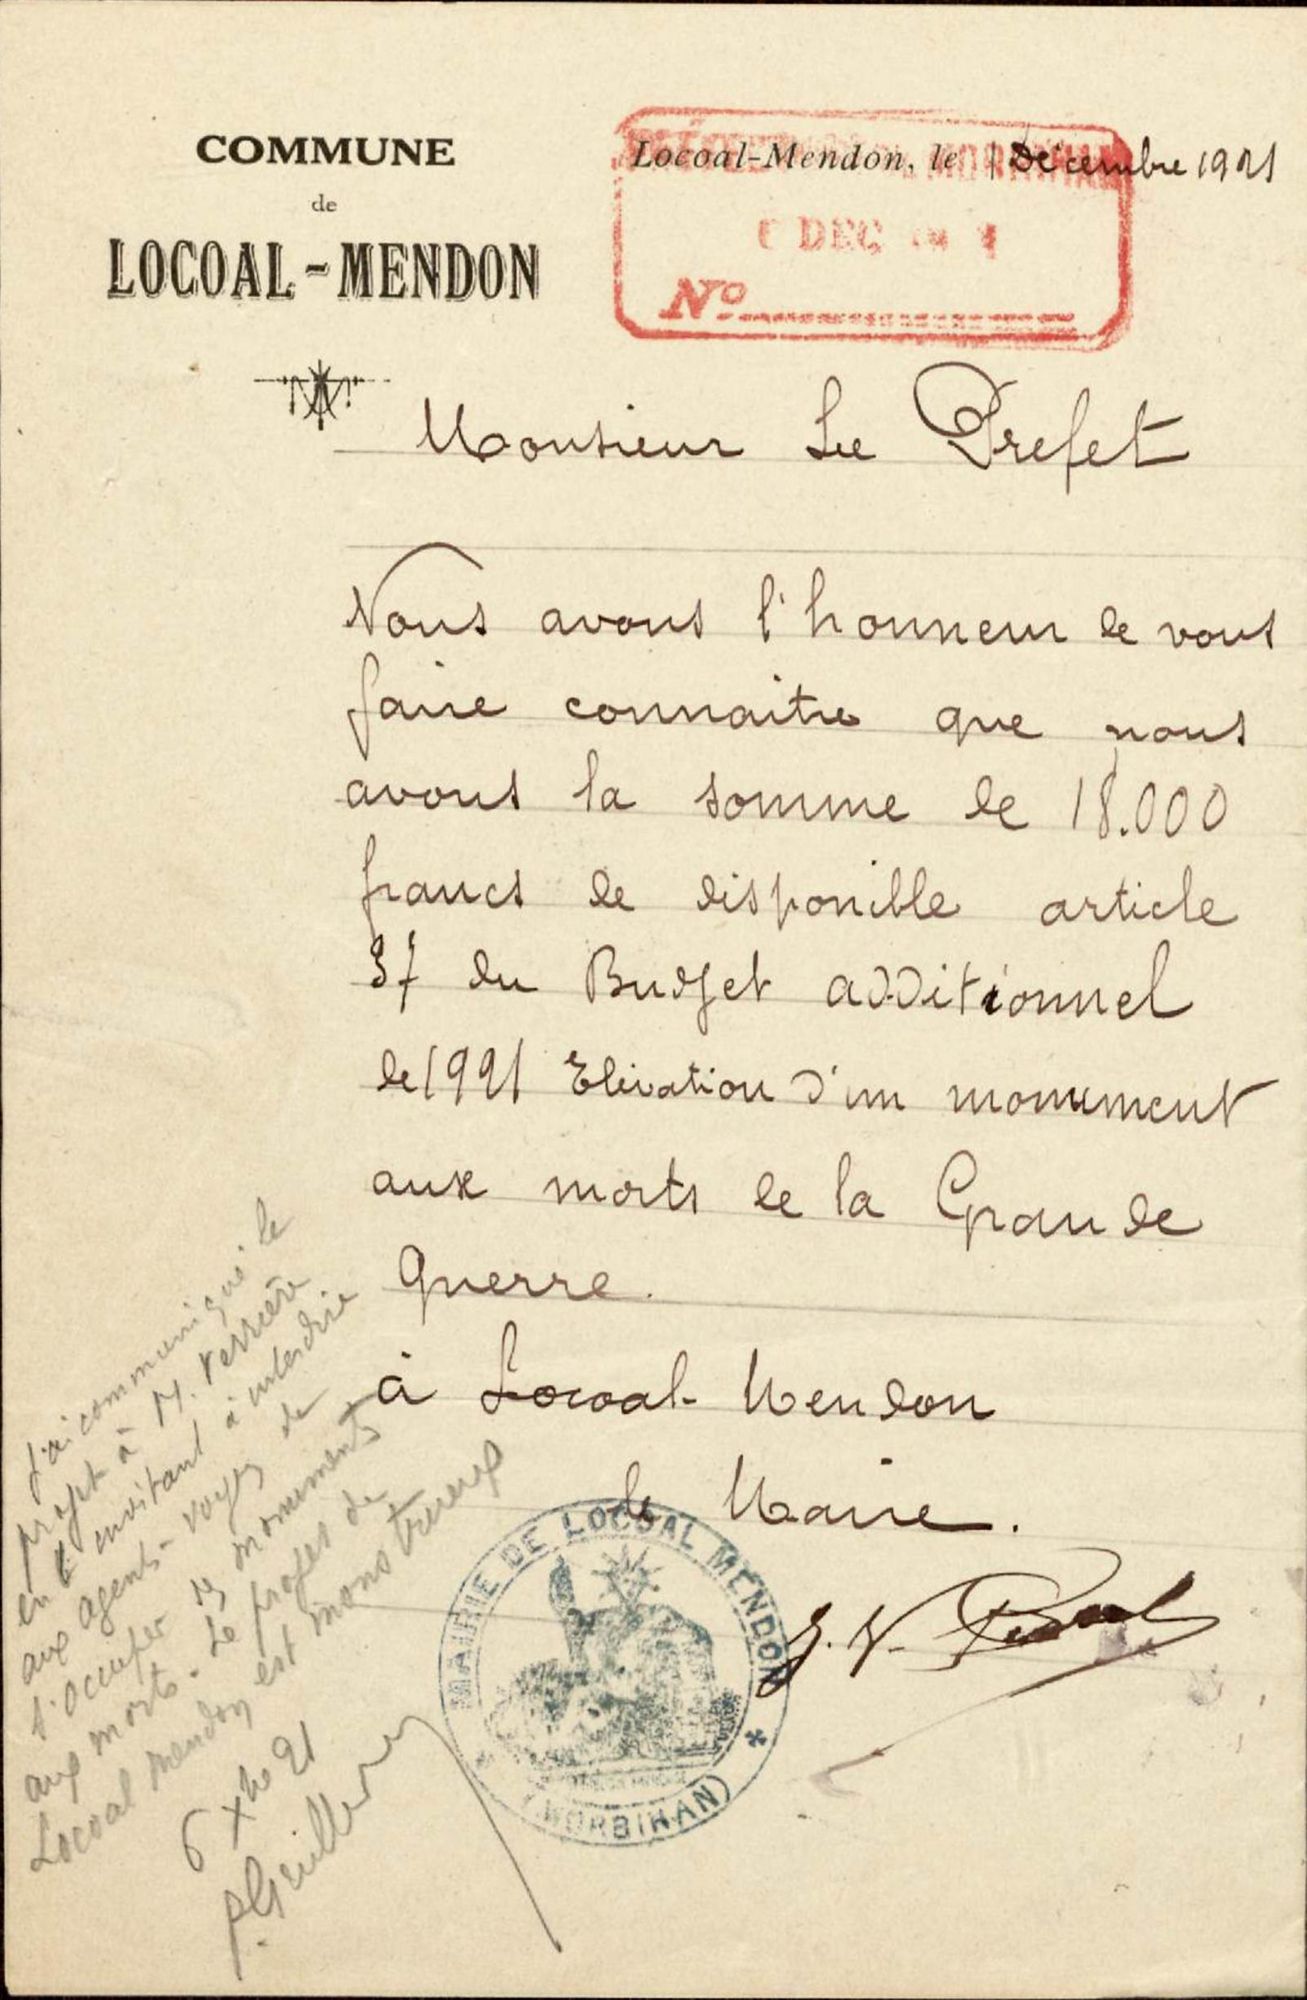 COMMUNE
de
LOCOAL-MENDON
Locoal-Mendon, le 1 Décembre 1921
DEC
No
Monsieur Le Prefet
Nous avons l'honneur de vous
faire connaitre que nous
avons la somme de 18.000
francs de disponible article
37 du Budget additionnel
de 1921 Elévation d'un monument
aux morts de la Grande
Guerre.
à Locoal-Mendon
le Maire.
MAIRIE DE LOCOAL MENDON
(MORBIHAN)
J'ai communiqué le
projet à M. Verrière
en l'invitant à interdire
aux agents-voyers de
s'occuper des monuments
aux morts. Le projet de
Locoal Mendon est monstrueux
6 Xbre 21